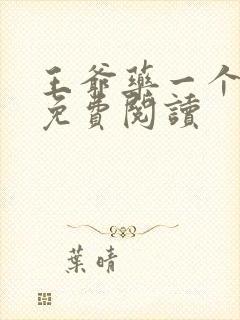 王爺藥一个
免費閱讀
葉晴